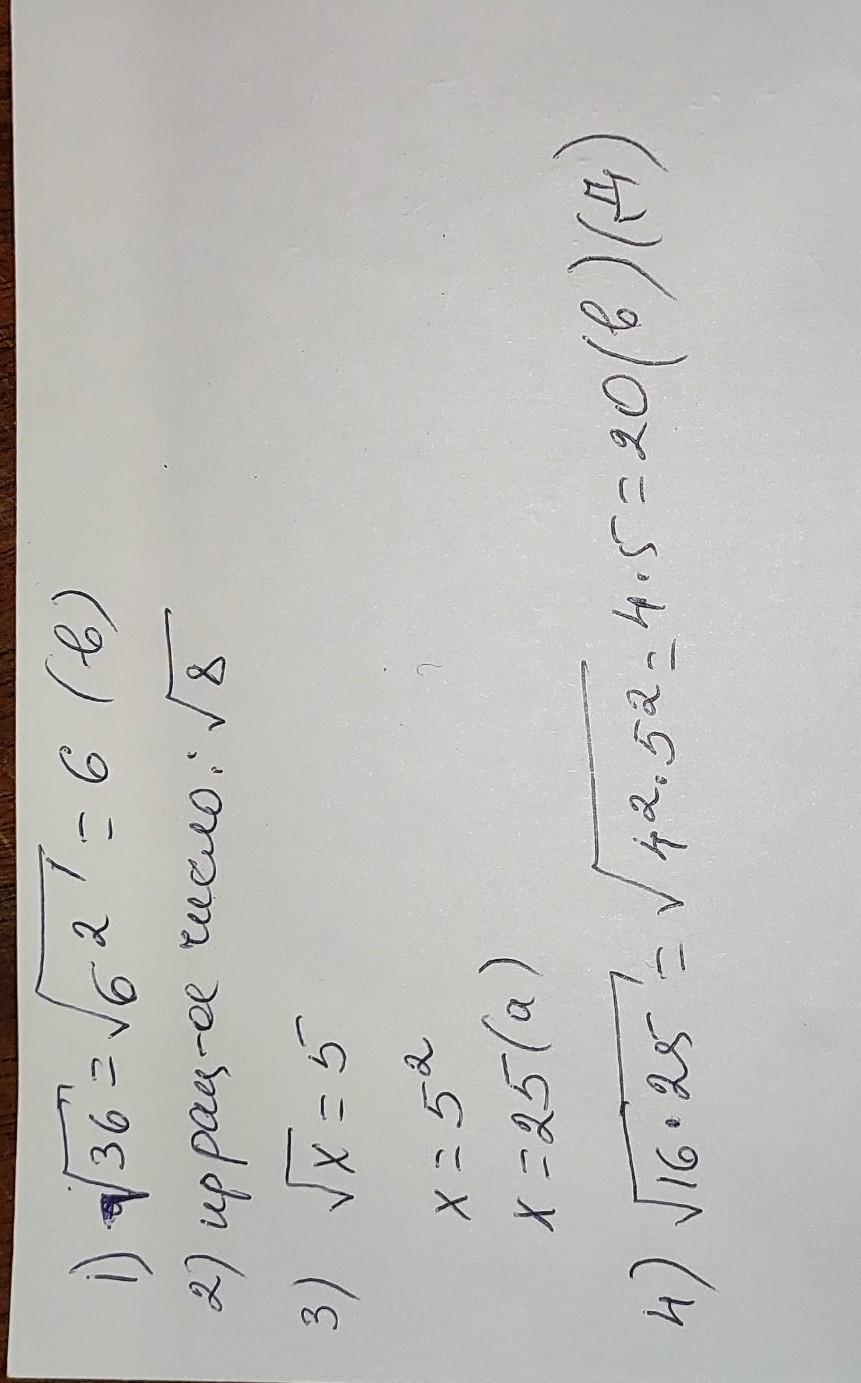 1) √36 = √6² = 6 (в)
2) иррац-ое число: √8
3) √x = 5
x = 5²
x = 25 (а)
4) √16·25 = √4²·5² = 4·5 = 20 (в) (Д)